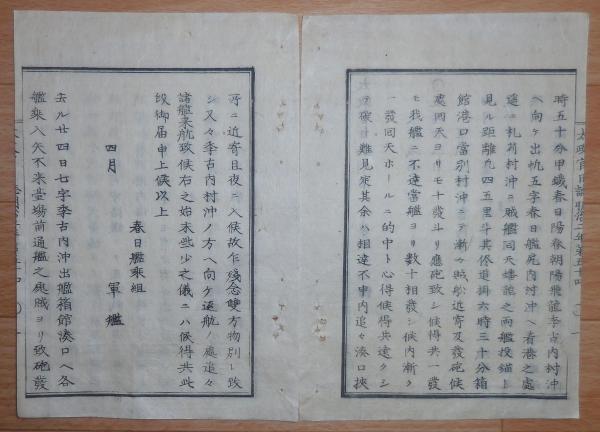 太政官日誌明治二年第五十四
時五十分甲鐵春日陽春朝陽飛龍李古内村沖
ヘ向ケ出帆五字春日艦尻内村沖ヘ着港之處
遥ニ札苅村沖ニ賊艦回天蟠龍之両艦投錨ト
見ル距離凡四五里斗其侭追掛六時三十分箱
館港口當別村沖ニテ漸々賊舩近寄及發砲候
處回天ヨリモ十發斗リ應砲致シ候得共一發
モ我艦ニ不達當艦ヨリ数十相發シ候内漸ク
一發回天ホールニ的中ト心得候得共遠クシ
テ破口難見定其余ハ相達不申内追々湊口挾
所ニ近寄且夜ニ入候故乍殘念雙方物別レ致
シ又々李古内村沖ノ方ヘ向ケ返航ノ處追々
諸艦乗航致候右之始末些少之儀ニハ候得共此
段御届申上候以上
春日艦乗組
四月　軍艦
去ル廿四日七字李古内沖出艦箱館湊口ヘ各
艦乗入矢不来臺場前通艦之處賊ヨリ致砲發